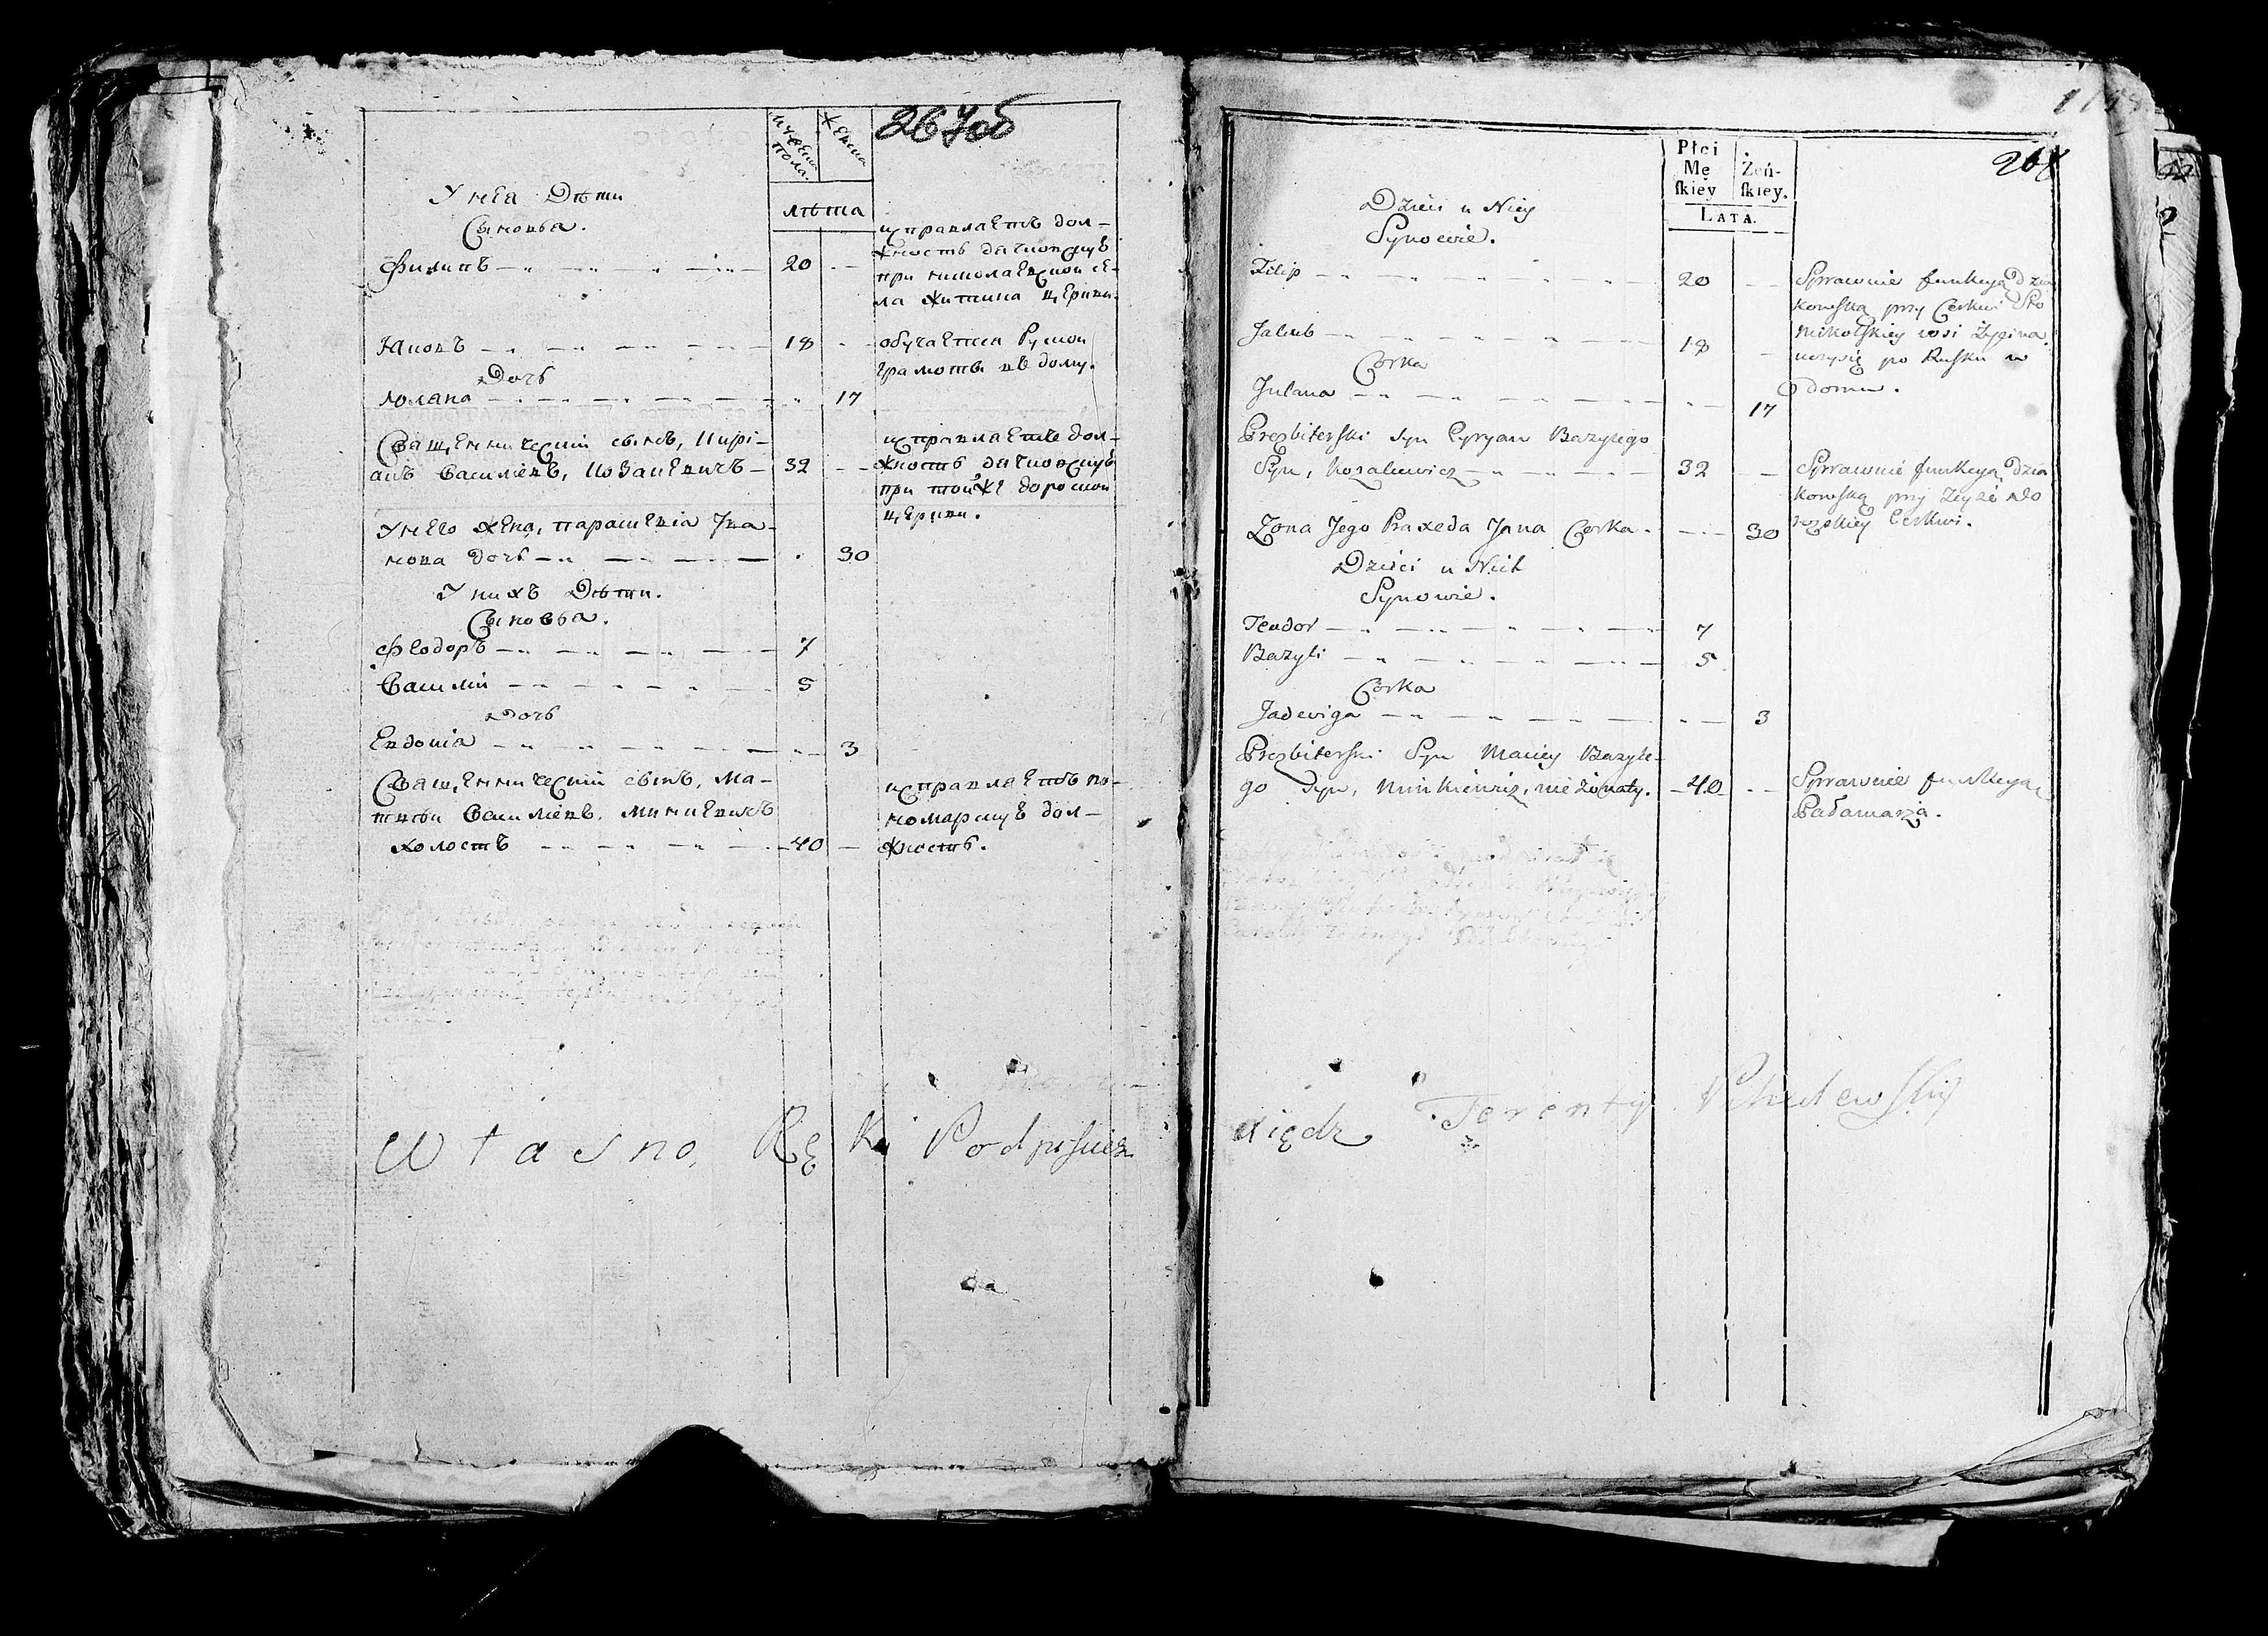 267об
мужеска пола.
женска
лѣта
У нея Дѣти
Сыновья.
Филипъ 20
исправляетъ дол-
жность дячковскую
при николаевской се-
ла житина церкви.
Яковъ 18
обучается Руской
грамоты въ дому.
Дочь
Юліана 17
Священническій сынъ, Кирі-
анъ Василіевъ, Козакевичъ 32
исправляетъ дол-
жность дячковскую
при той же дороской
церкви.
У него жена, параскевіа Ива-
нова дочь 30
У нихъ Дѣти.
Сыновья.
Феодоръ 7
Василій 5
Дочь
Евдокіа 3
Священническій сынъ, Ма-
тѣй Василіевъ, минкевичъ
холостъ 40
исправляетъ по-
номарскую дол-
жность.
Własno, Rę Ką Podpisuię
268
Płci
Mę
skiey
Żeń-
skiey.
LATA.
Dzieci u Niey
Synowie.
Filip 20
Sprawuie funkcyą Dzia
kowską przy Cerkwi Sto
Mikolskiey wsi Życina.
Jakub 18
uczysię po Rusku w
domu.
Corka
Julana 17
Prezbiterski Syn Cypryan Bazylego
Syn, Kozakiewicz 32
Sprawuie funkcyą Dzia
kowską przy teyże Do
rozskiey Cerkwi.
Zona Jego Praxeda Jana Corka. 30
Dzieci u Nich
Synowie.
Teodor 7
Bazyli 5
Corka
Jadewiga 3
Prezbiterski Syn Maciey Bazyle-
go Syn, Minkiewicz, nieżonaty. 40
Sprawuie funkcyą
Pałamarza.
xiędz Terenty